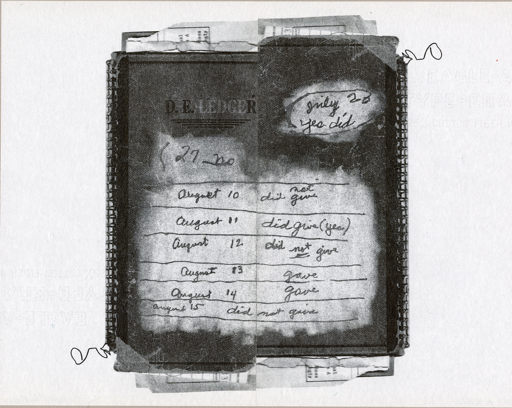 D. E. LEDGER
July 20
yes did
( 27 no
August 10 did not give
August 11 did give (yes)
August 12 did not give
August 13 gave
August 14 gave
august 15 did not gave